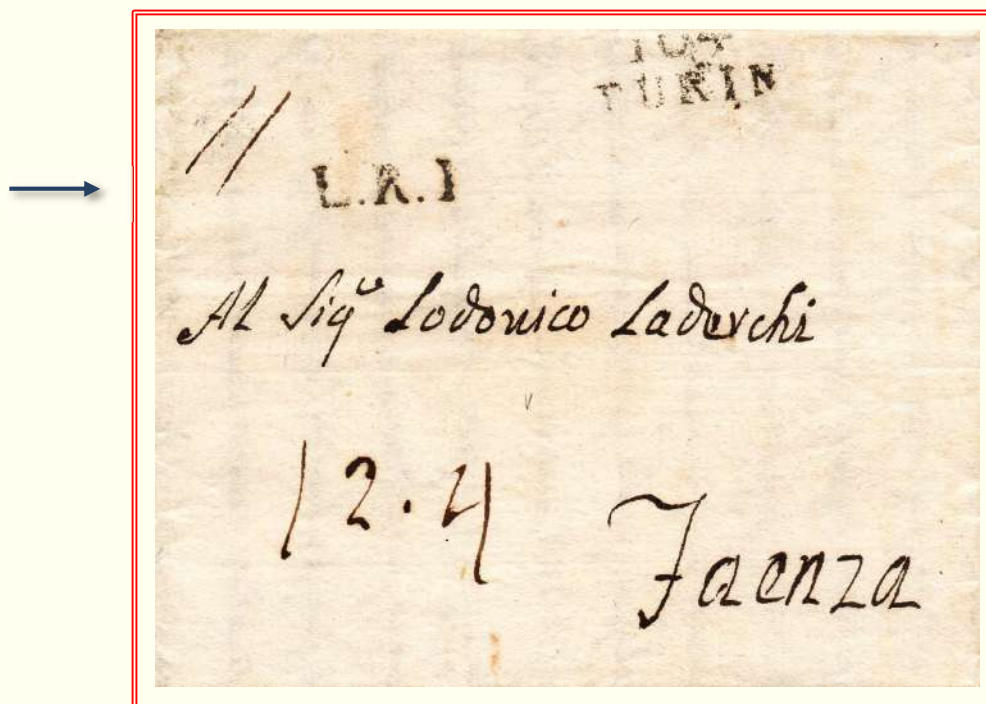 104
TURIN
L.R.I
Al Sigr Lodovico Laderchi
12.4
Faenza